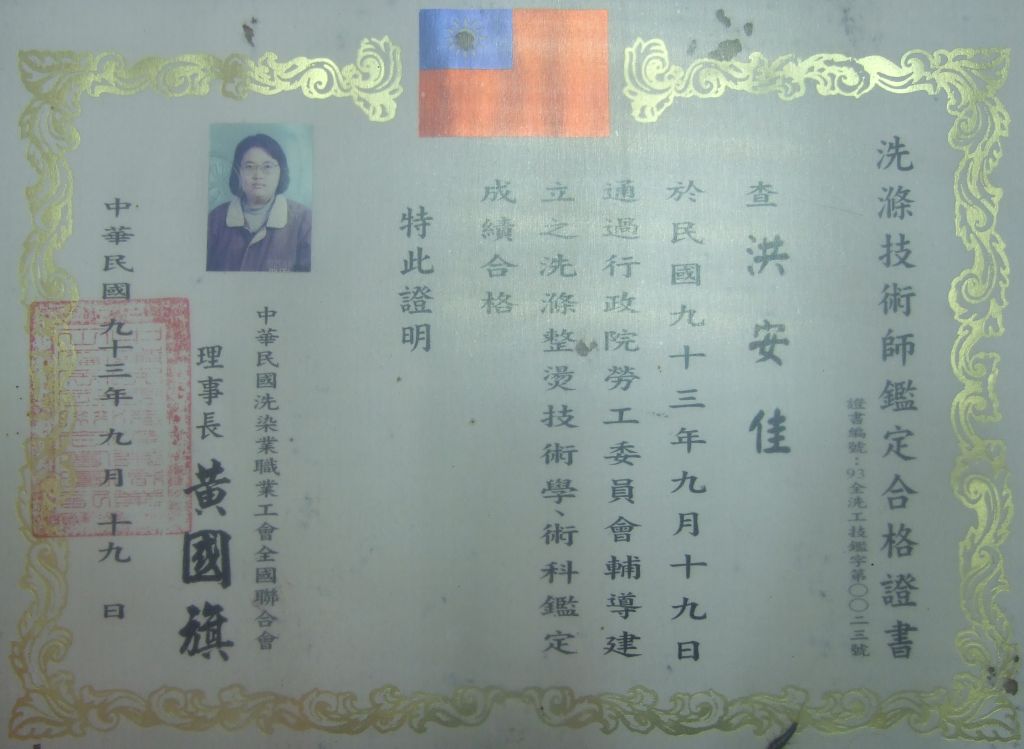 洗滌技術師鑑定合格證書
證書編號：93全洗工技鑑字第〇〇二三號
查洪安佳
於民國九十三年九月十九日
通過行政院勞工委員會輔導建
立之洗滌整燙技術學、術科鑑定
成績合格
特此證明
中華民國洗染業職業工會全國聯合會
理事長 黃國旗
中華民國九十三年九月十九日